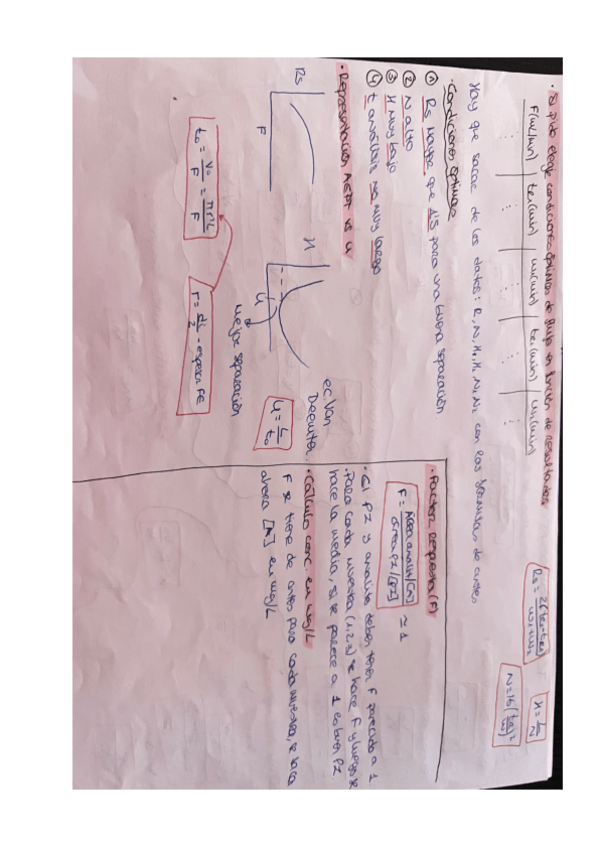 · Si pide elegir condiciones óptimas de flujo en función de resultados
F(mL/min) | tR1(min) | w1(min) | tR2(min) | w2(min)
Rs = 2(tR2-tR1)/w1+w2
H = L/N
N = 16(tR/w)²
Hay que sacar de los datos: R, N, H, con las fórmulas de antes
· Condiciones óptimas
① Rs mayor que 1'5 para una buena separación
② N alto
③ H muy bajo
④ t análisis no muy largo
· Representación AEPT vs u
Rs
F
H
u
mejor separación
ec Van
Deemter
u = L/t0
t0 = V0/F = πr²L/F
r = di/2 - espesor FE
· Factor respuesta (F)
F = Área analito/[A] / área PI/[PI] ≃ 1
· El PI y analito deben tener F parecido a 1
· Para cada muestra (1,2,3) se hace F y luego se
hace la media, si se parece a 1 es buen PI
· Cálculo conc. en mg/L
F se tiene de antes para cada muestra, se saca
ahora [A] en mg/L